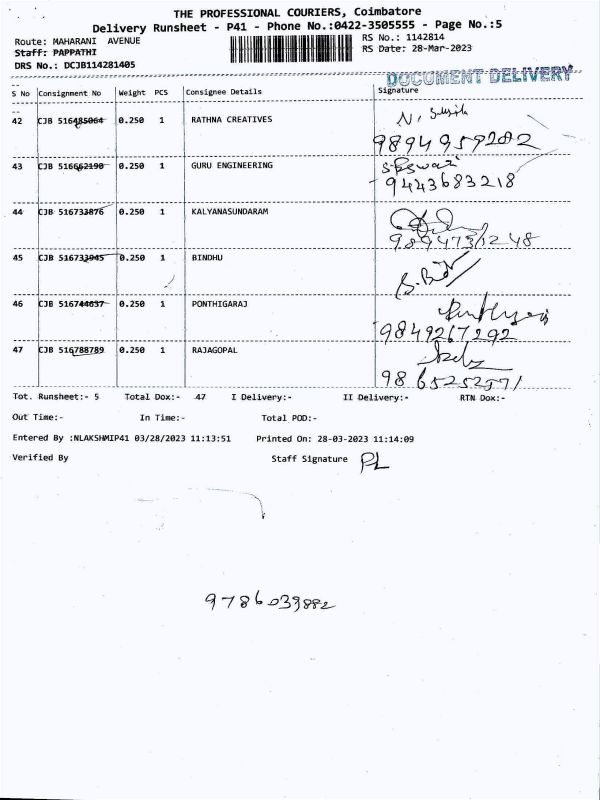 THE PROFESSIONAL COURIERS, Coimbatore
Delivery Runsheet - P41 - Phone No.:0422-3505555 - Page No.:5
Route: MAHARANI AVENUE
RS No.: 1142814
Staff: PAPPATHI
RS Date: 28-Mar-2023
DRS No.: DCJB114281405
DOCUMENT DELIVERY
S No Consignment No Weight PCS Consignee Details Signature
42 CJB 516485064 0.250 1 RATHNA CREATIVES
9894959202
43 CJB 516662190 0.250 1 GURU ENGINEERING
9443683218
44 CJB 516733876 0.250 1 KALYANASUNDARAM
9894731248
45 CJB 516733945 0.250 1 BINDHU
46 CJB 516744637 0.250 1 PONTHIGARAJ
9849267292
47 CJB 516788789 0.250 1 RAJAGOPAL
9865252571
Tot. Runsheet:- 5 Total Dox:- 47 I Delivery:- II Delivery:- RTN Dox:-
Out Time:- In Time:- Total POD:-
Entered By :NLAKSHMIP41 03/28/2023 11:13:51 Printed On: 28-03-2023 11:14:09
Verified By Staff Signature PL
9786039882